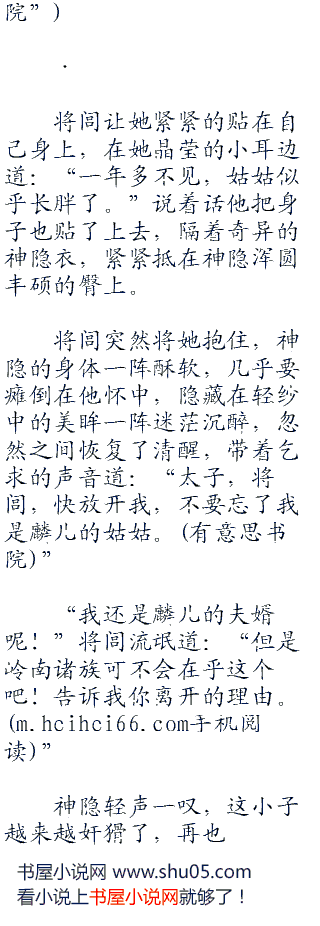 院”)
.
将闾让她紧紧的贴在自
己身上，在她晶莹的小耳边
道：“一年多不见，姑姑似
乎长胖了。”说着话他把身
子也贴了上去，隔着奇异的
神隐衣，紧紧抵在神隐浑圆
丰硕的臀上。
将闾突然将她抱住，神
隐的身体一阵酥软，几乎要
瘫倒在他怀中，隐藏在轻纱
中的美眸一阵迷茫沉醉，忽
然之间恢复了清醒，带着乞
求的声音道：“太子，将
闾，快放开我，不要忘了我
是麟儿的姑姑。(有意思书
院)”
“我还是麟儿的夫婿
呢！”将闾流氓道：“但是
岭南诸族可不会在乎这个
吧！告诉我你离开的理由。
(m.hcihci66.com手机阅
读)”
神隐轻声一叹，这小子
越来越奸猾了，再也
书屋小说网 www.shu05.com
看小说上书屋小说网就够了！